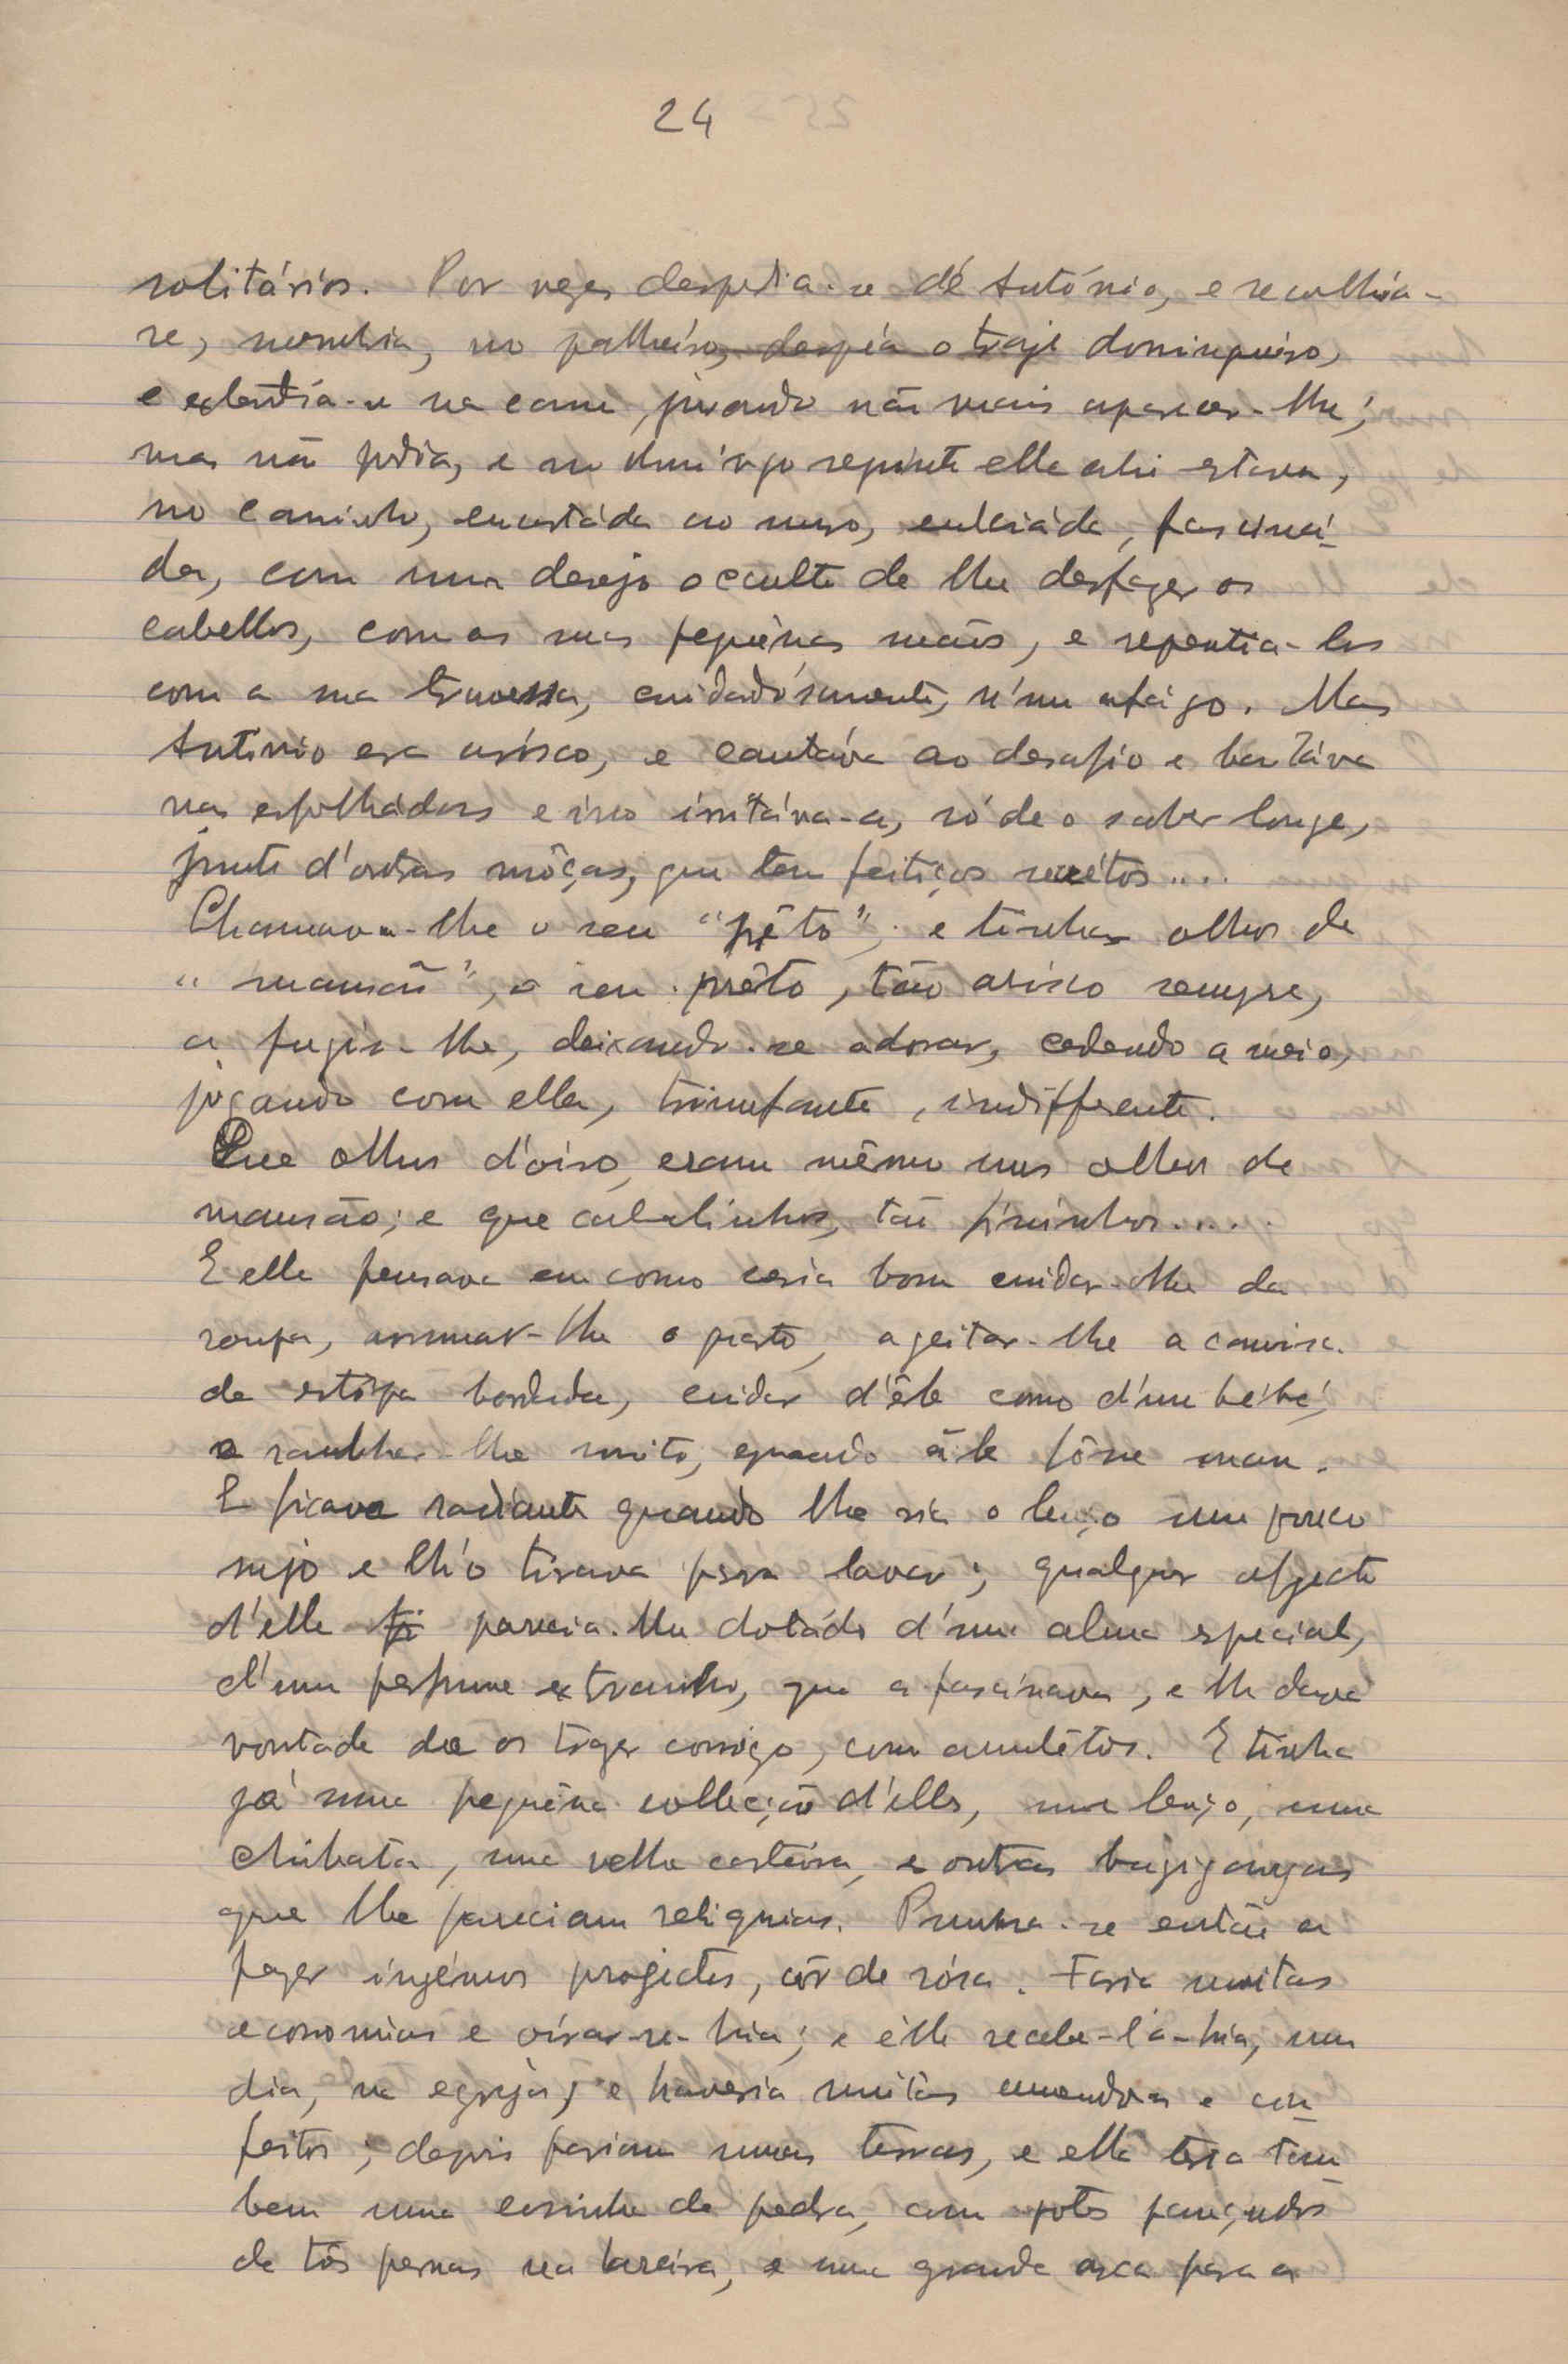 24
solitários. Por vezes despedia-se de António, e recolhia-
se, sombria, no palheiro, despia o traje domingueiro,
e extendia-se na cama, jurando não mais aparecer-lhe;
mas não podia, e no domingo seguinte ella ahi estava,
no caminho, encostáda ao muro, enleiáda, fasciná-
da, com um desejo occulto de lhe desfazer os
cabellos, com as suas pequênas mãos, e repentia-los
com a sua travessa, cuidadósamente, n'um afágo. Mas
António era arisco, e cantáva ao desafio e bailáva
nas esfolhádas e isso irritáva-a, só de o saber longe,
junto d'outras môças, que tem feitiços secrétos....
Chamava-lhe o seu "prêto", e tinha olhos de
" mansão", o seu prêto, tão arisco sempre,
a fugir-lhe, deixando-se adorar, cedendo a meio,
jogando com ella, triunfante, indifferente.
Que olhos d'oiro, eram mêsmo uns olhos de
mansão; e que cabelinhos, tão fininhos....
E ella pensava em como seria bom cuidar-lhe da
roupa, arrumar-lhe o prato, ageitar-lhe a camisa
de estôpa bordada, cuidar d'êle como d'um bébé,
e ralhar-lhe muito, quando êle fôsse mau.
E ficava radiante quando lhe via o lenço um pouco
sujo e lh'o tirava para lavar; qualquer objecto
d'elle parecia-lhe dotádo d'uma alma especial,
d'um perfume extranho, que a fascinava, e lhe dava
vontade de os trazer comsigo, como amulêtos. E tinha
já uma pequêna collecção d'elles, um lenço, uma
chibata, uma velha carteira, e outras bugigangas
que lhe pareciam reliquias. Punha-se então a
fazer ingénuos projectos, côr de rósa. Faria muitas
economias e oirar-se-hia; e êlle recebe-lá-hia, um
dia, na egreja; e haveria muitas amendoas e con-
feitos; depois fariam umas terras, e ella teria tam-
bem uma cosinha de pedra, com potes pançudos
de três pernas na lareira, e uma grande arca para a